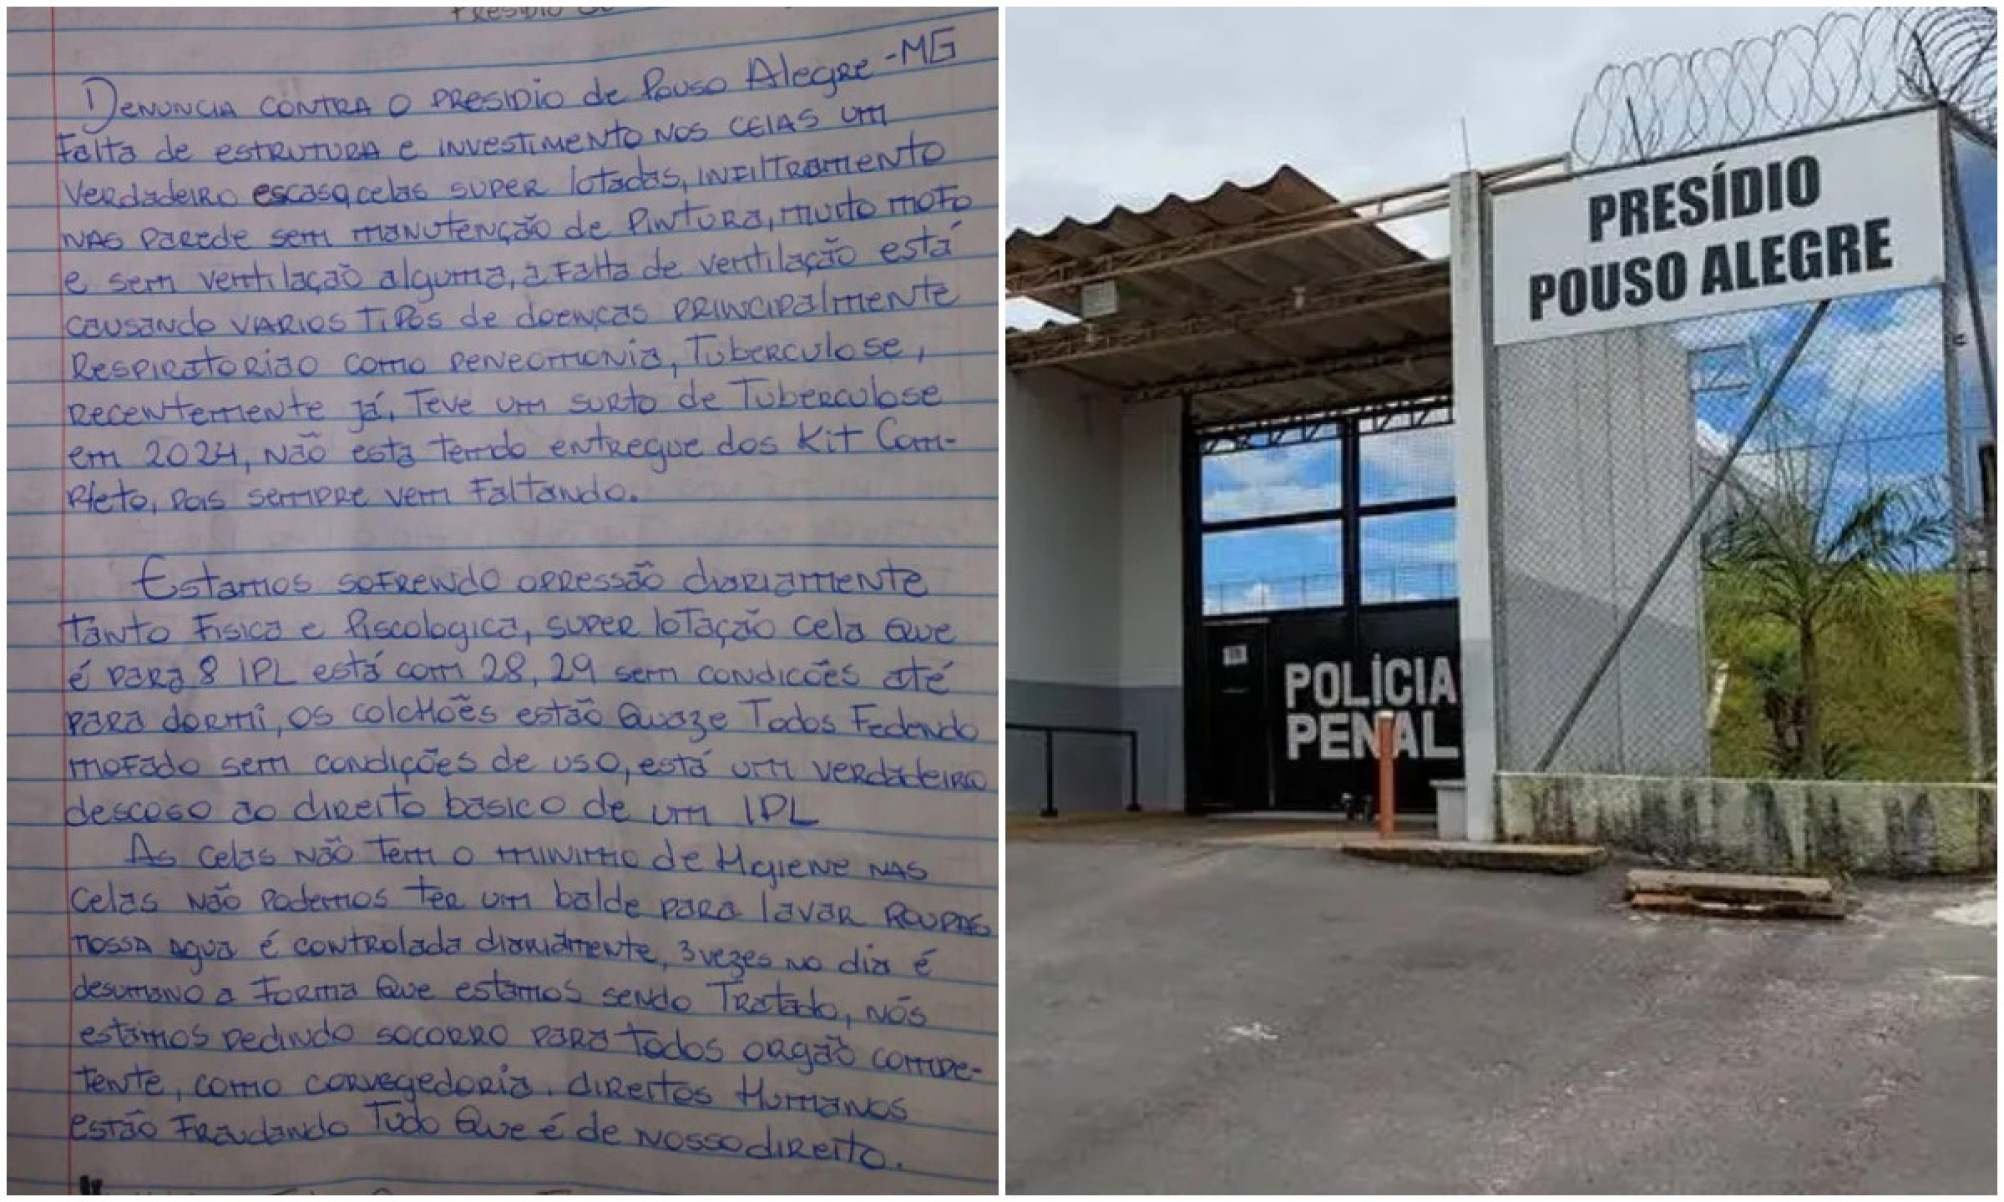 Presídio
Denuncia contra o presidio de Pouso Alegre-MG
Falta de estrutura e investimento nos celas um
verdadeiro escaso, celas super lotadas, infiltramento
nas parede sem manutenção de Pintura, muito mofo
e sem ventilação alguma, a falta de ventilação está
causando varios tipos de doenças principalmente
Respiratorião como peneomonia, Tuberculose,
recentemente já, Teve um surto de Tuberculose
em 2024, não esta tendo entregue dos Kit Com-
pleto, pois sempre vem faltando.
Estamos sofrendo opressão diariamente
tanto Fisica e Piscologica, super lotação cela que
é para 8 IPL está com 28, 29 sem condicões até
para dormi, os colchões estão Quaze Todos Fedendo
mofado sem condições de uso, está um verdadeiro
descoso ao direito basico de um IPL
As celas não tem o minimo de Hgiene nas
celas não podemos ter um balde para lavar roupas
nossa agua é controlada diariamente, 3 vezes no dia é
desumano a forma que estamos sendo Tratado, nós
estamos pedindo socorro para todos orgão compe-
tente, como corvegedoria, direitos Humanos
estão Fraudando Tudo Que é de nosso direito.
PRESÍDIO
POUSO ALEGRE
POLÍCIA
PENAL